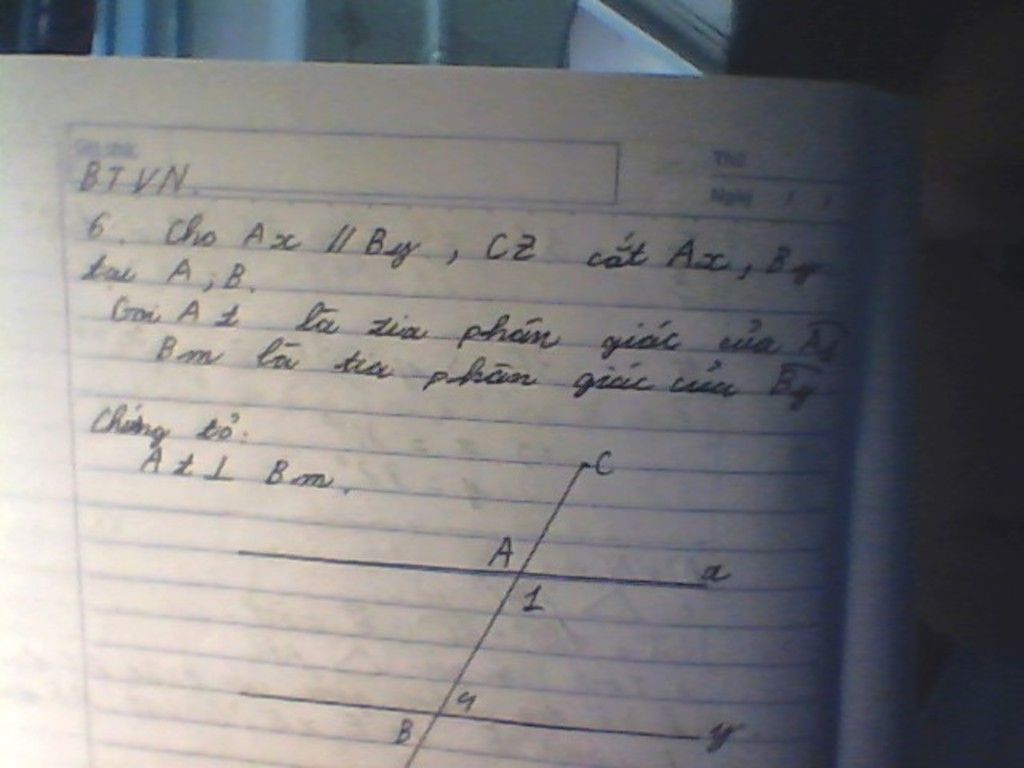 BTVN.
Thứ
Ngày / /
6. Cho Ax // By, CZ cắt Ax, By
tại A, B.
Gọi At là tia phân giác của A1
Bm là tia phân giác của
Chứng tỏ:
At ⊥ Bm.
C
A x
1
4
B y